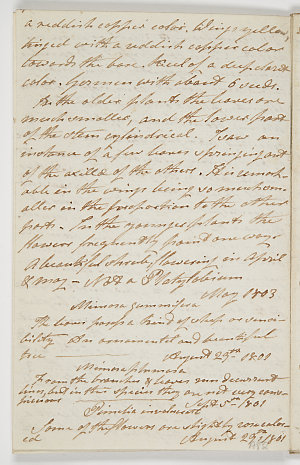 a reddish copper color. Wings yellow,
tinged with a reddish copper color
towards the base. Keel of a deep dark
color. Germen with about 6 seeds.
In the older plants the leaves are
much smaller, and the lower part
of the stem cylindrical. I saw an
instance of a few leaves springing out
of the axillæ of the others. It is remark-
able in the wings being so much sm-
aller in the proportion to the other
parts. In the younger plants the
flowers frequently point one way.
A beautiful shrub, flowering in April
& May — a Platylobium.
May 1803
Mimosa
The leaves possess a kind of sensi-
bility An ornamental and beautiful
tree August 29th 1801
Mimosa
From the branches & leaves run decurrent
lines, but in this species they are not very conspi-
cuous Septr 5th 1801
Pimelia
Some of the flowers are slightly
ed August 29th 1801